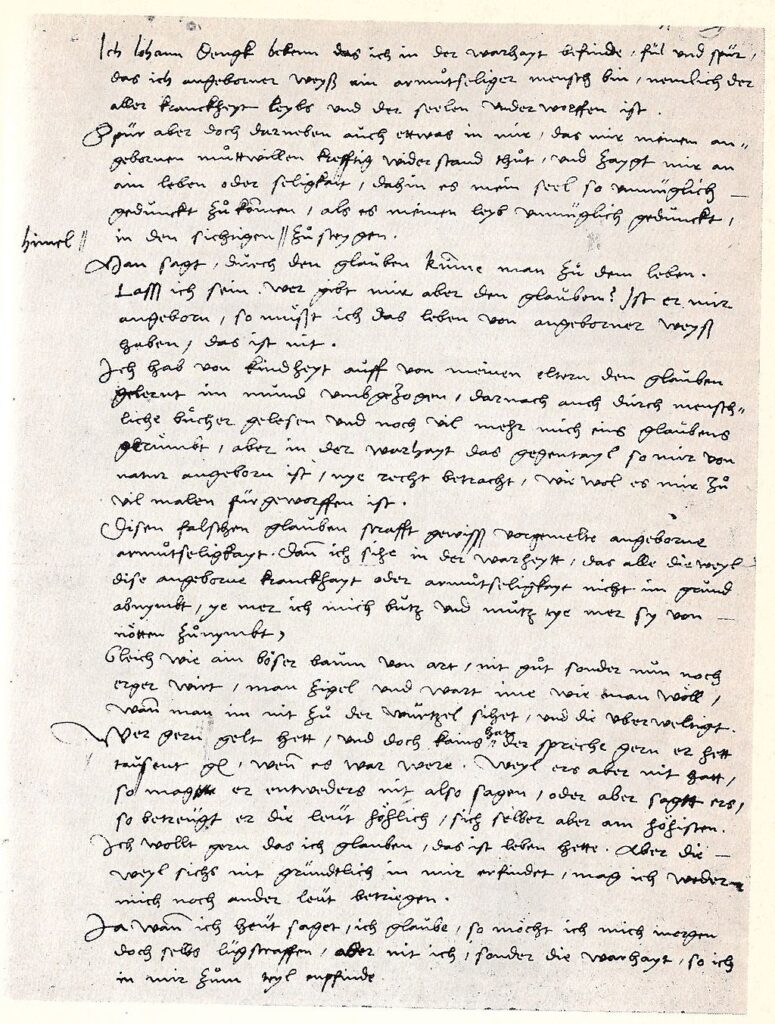 Ich Iohann Dengk bekenn das ich in der warhayt befinde, fül und spür,
das ich angeborner weyß ain armůtseliger mensch bin, nemlich der
aller kranckheyt leybs und der seelen underworffen ist.
Spür aber doch darneben auch ettwas in mir, das mir meinen an„
gebornen můttwillen krefftig widerstand thůt, und zaygt mir an
ain leben oder seligkait, dahin es mein seel so unmüglich —
gedunckt zů kommen, als es meinen leyb unmüglich gedunckt,
himel // in den sichtigen // zů steygen.
Man sagt, durch den glauben kumme man zů dem leben.
Lasß ich sein. wer gibt mir aber den glauben? Ist er mir
angeborn, so můßt ich das leben von angeborner weyß
haben, das ist nit.
Ich hab von kindheyt auff von meinen eltern den glauben
gelernt im mund umbgezogen, darnach auch durch mensch„
liche bücher gelesen und noch vil mehr mich eins glaubens
gerümbt, aber in der warhayt das gegentayl so mir von
natur angeborn ist, nye recht betracht, wie wol es mir zů
vil malen fürgeworffen ist.
Disen falschen glauben strafft gewißß vorgemelte angeborne
armůtseligkayt. Dañ ich sihe in der warheytt, das alle die weyl
dise angeborne kranckhayt oder armůtseligkayt nicht im grund
abnymbt, ye mer ich mich butz und mutz ye mer sy von —
nötten zůnymbt,
Gleich wie ain böser baum von art, nit gůt sonder nun noch
erger wirt, man zigel und wart ime wie man wöll,
wañ man im nit zů der wurtzel sihet, und die uberweltigt.
Wer gern gelt hett, und doch kains hatt der spreche gern er hett
tausent gl, weñ es war were. Weyl ers aber nit hatt,
so mag er entweders nit also sagen, oder aber sagtt ers,
so betreugt er die leüt höhlich, sich selber aber am höhisten.
Ich wollt gern das ich glauben, das ist leben hette. Aber die —
weyl sichs nit gründtlich in mir erfindet, mag ich weder
mich noch ander leüt betriegen.
Ja wañ ich heüt saget, ich glaube, so möcht ich mich morgen
doch selbs lügstraffen, aber nit ich, sonder die warhayt, so ich
in mir zům teyl enpfinde.